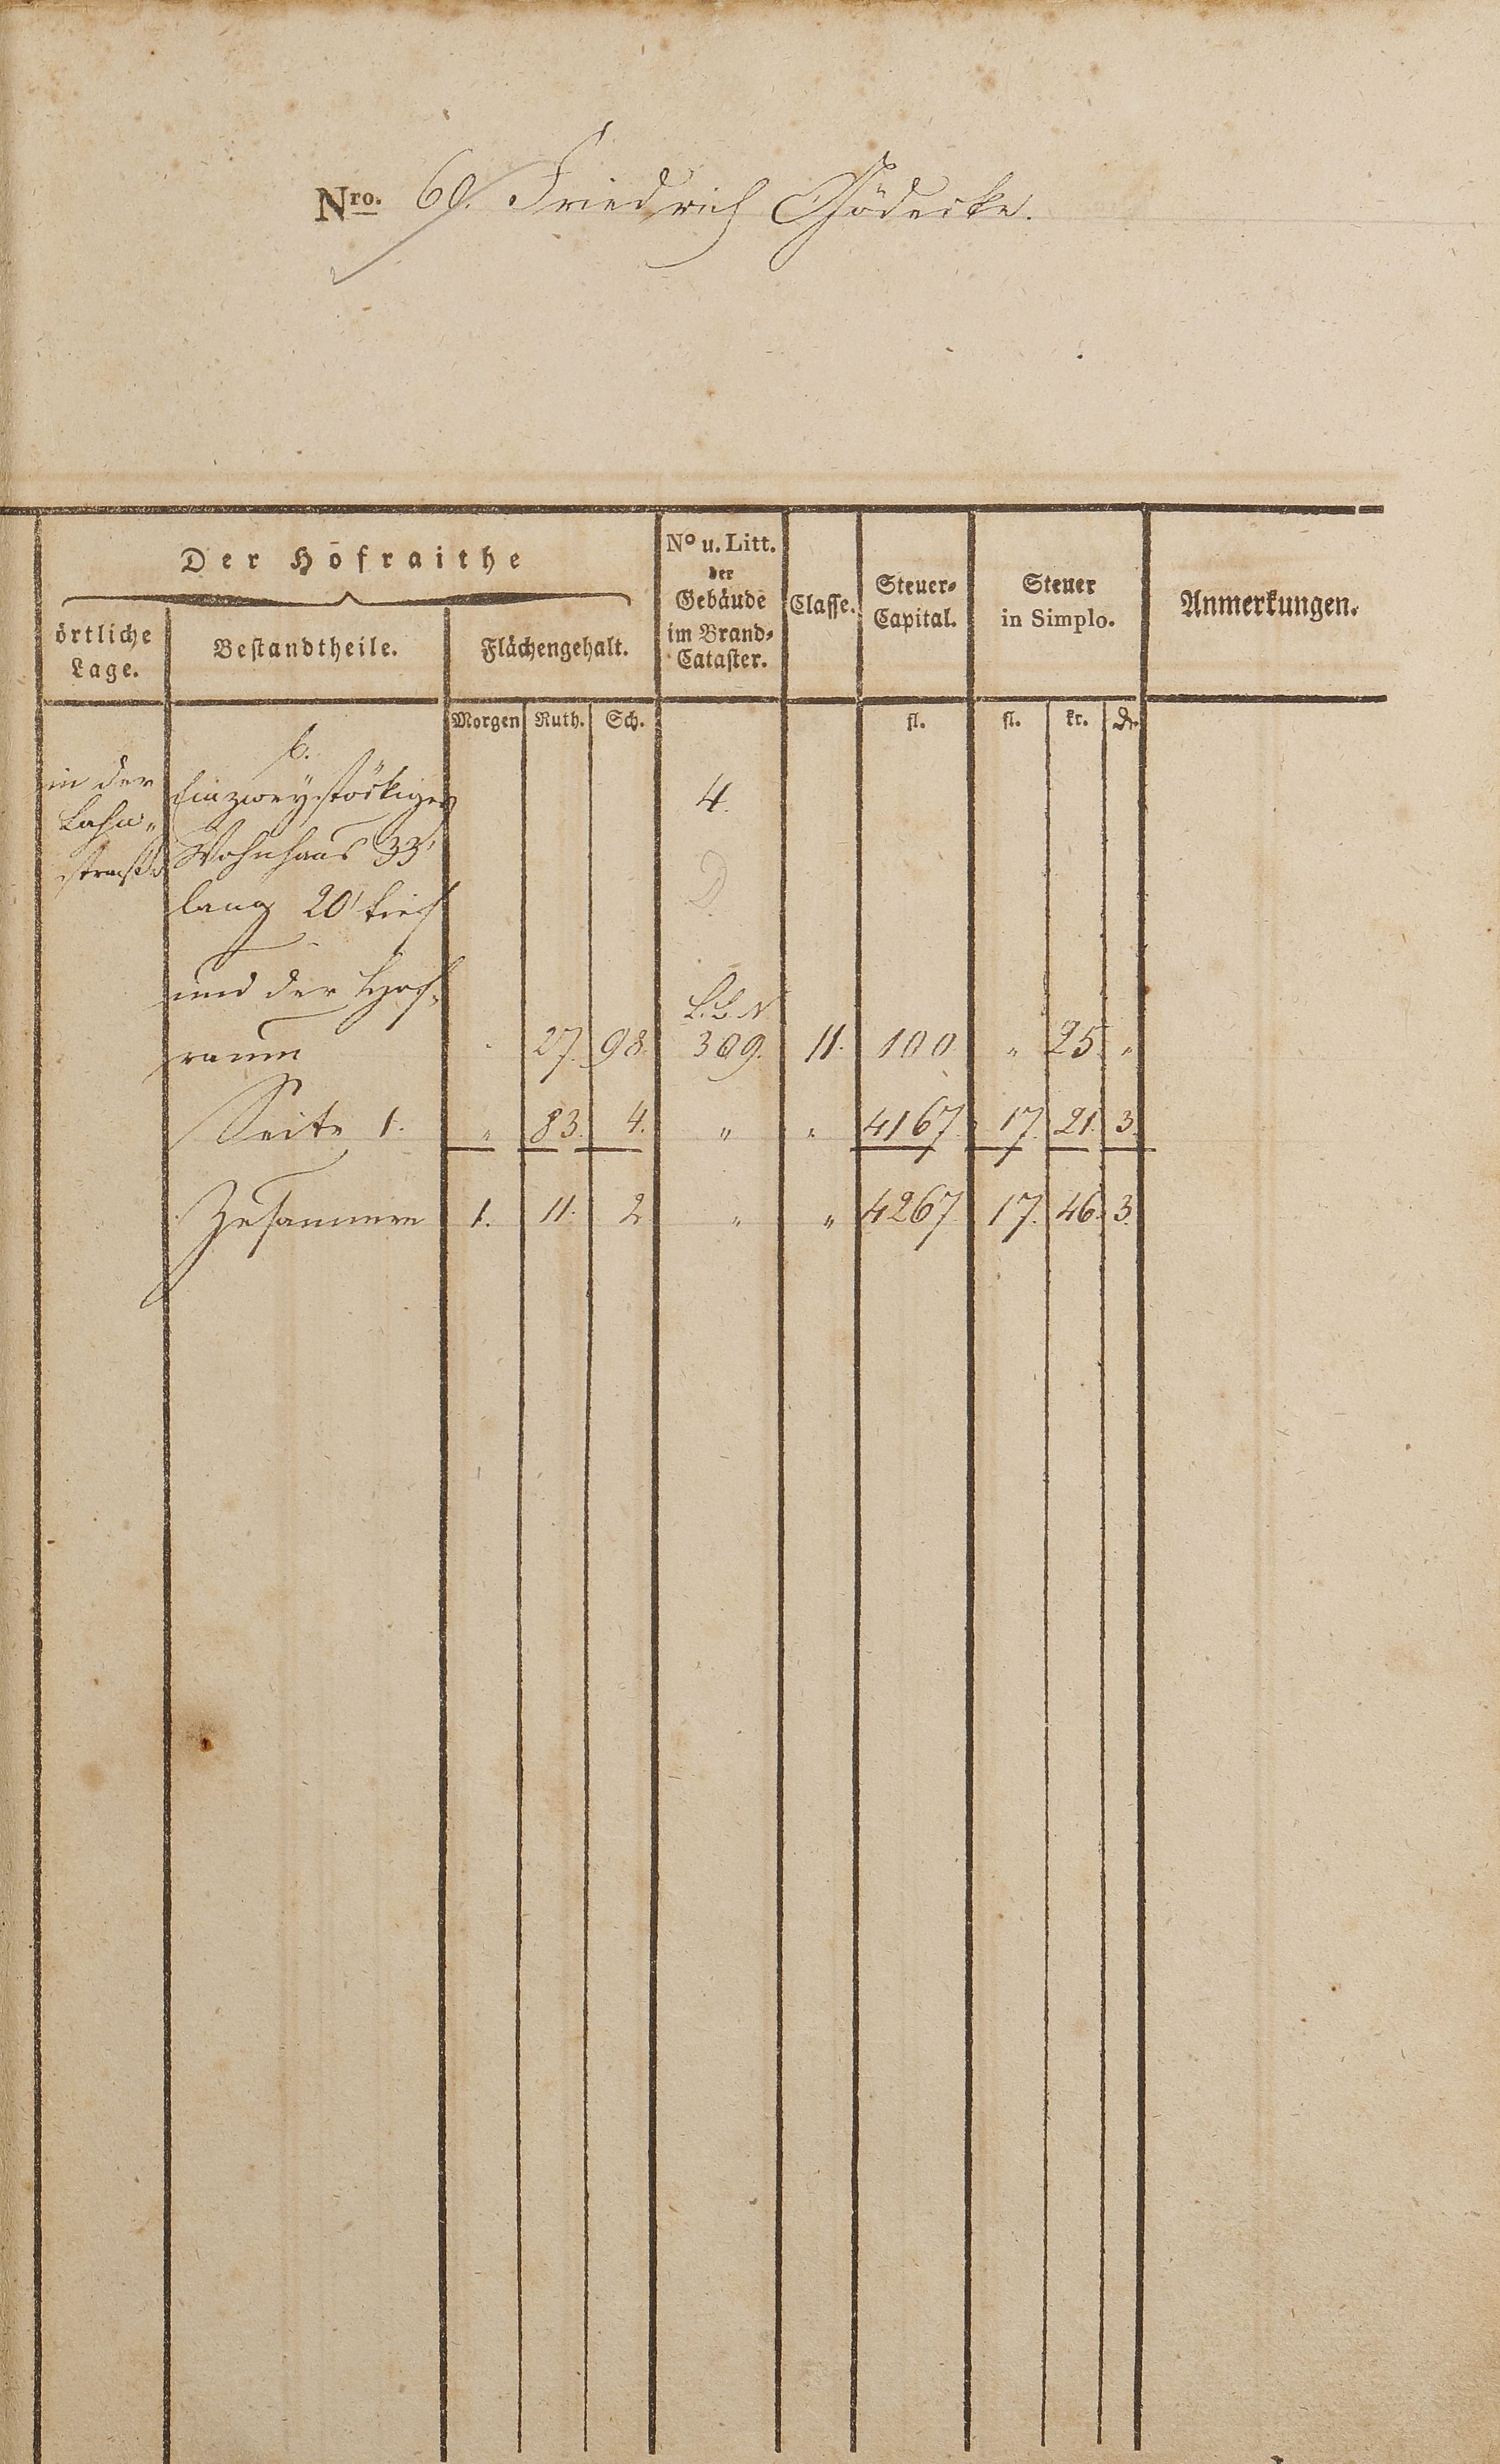 Nro. 60. Friedrich Gödecke.
Der Hofraithe
örtliche
Lage.
Bestandtheile.
Flächengehalt.
No u. Litt.
der
Gebäude
im Brand-
Cataster.
Classe.
Steuer-
Capital.
Steuer
in Simplo.
Anmerkungen.
Morgen Ruth. Sch. fl. fl. kr. d.
b.
in der Ein zweystöckiges 4.
Lahn-
straße Wohnhaus 33'
lang 20' tief
und der Hof-
raum 27. 98. 309. 11. 100 " 25. "
Seite 1. " 83. 4. " " 4167. 17. 21. 3.
Zusammen 1. 11. 2 " " 4267. 17. 46. 3.